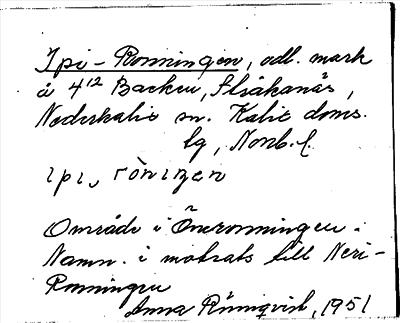 Ipi-Ronningen, odl. mark
å 4¹² Backen, Stråkanäs,
Nederkalix sn. Kalix doms.
lg, Norrb. l.
ipi, rònizen
Område i Öneronningen.
Namn. i motsats till Neri-
Ronningen
Anna Rönnqvist, 1951